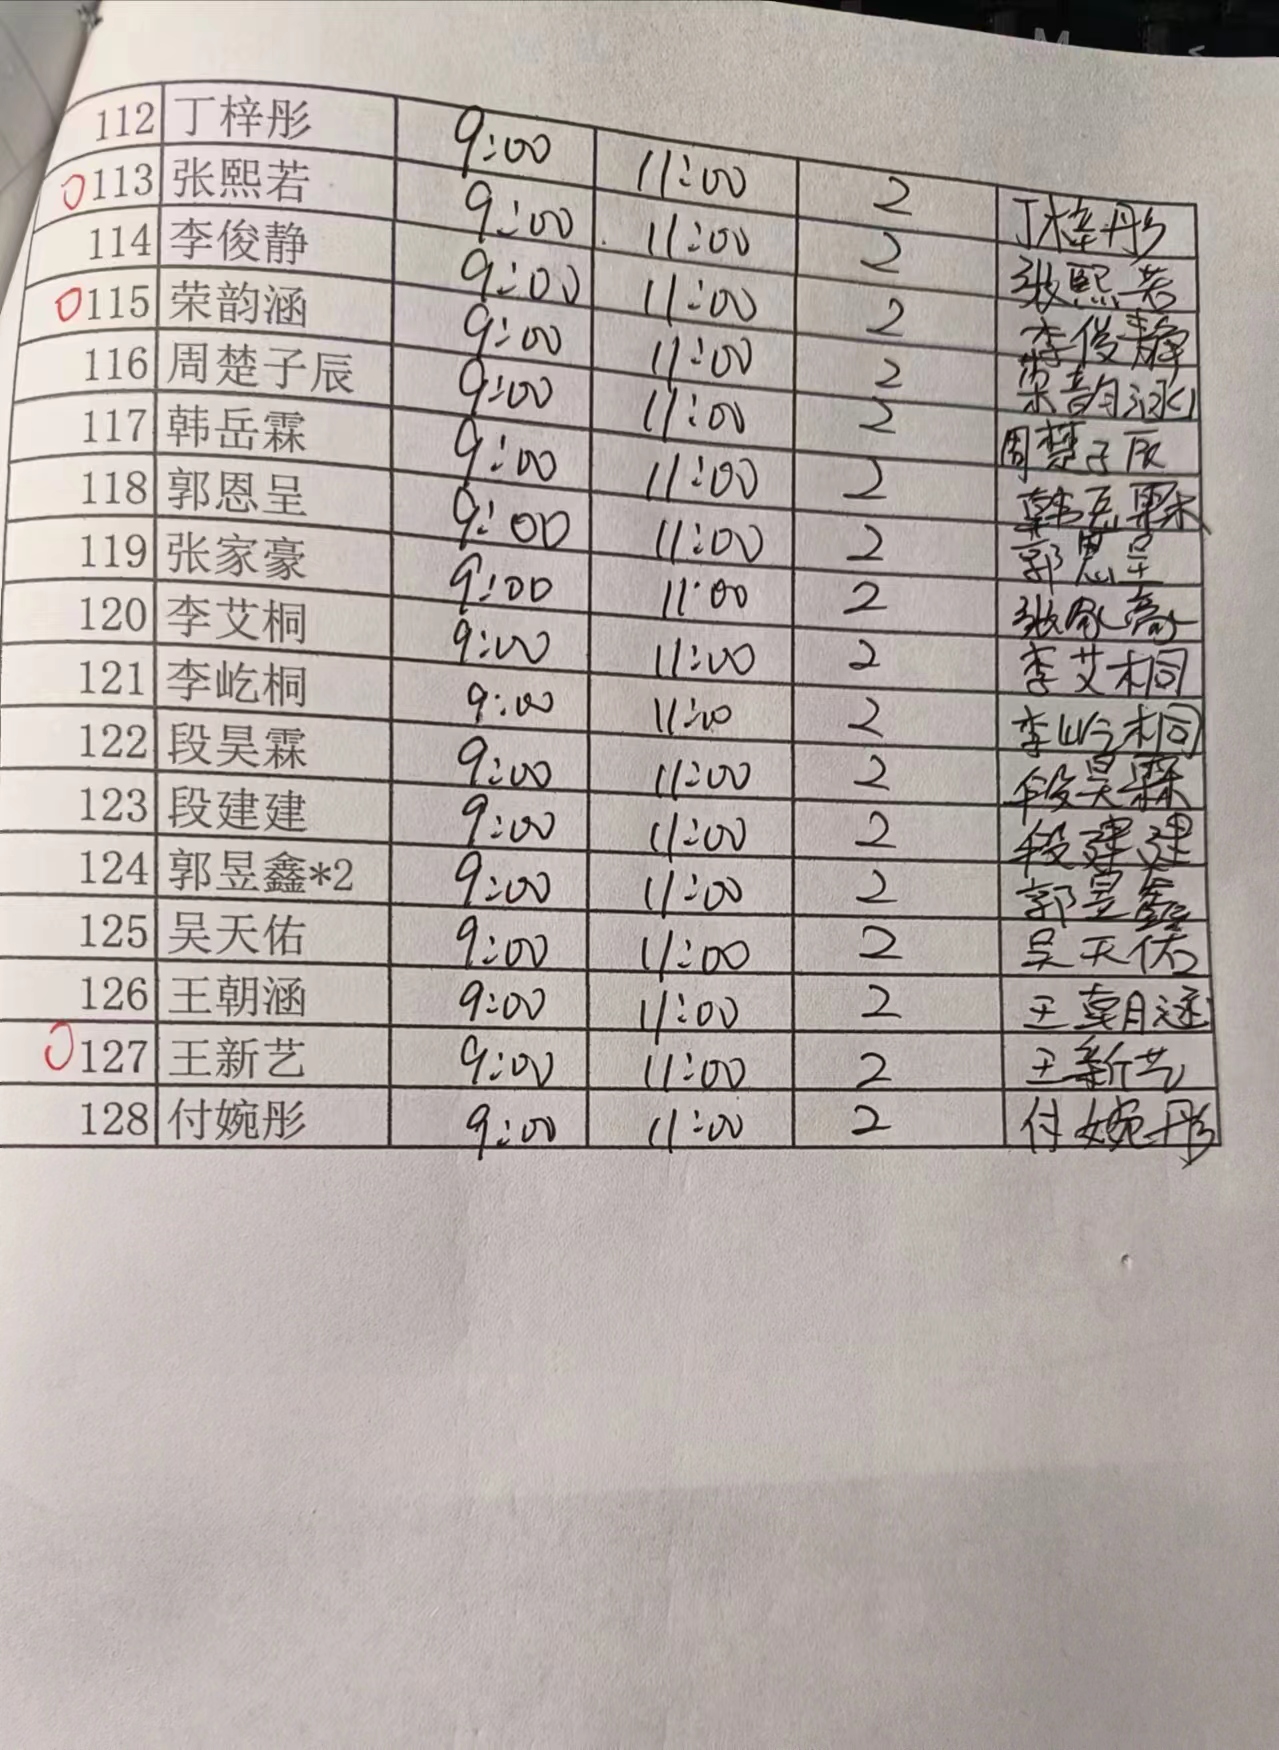 112 丁梓彤 9:00 11:00 2 丁梓彤
113 张熙若 9:00 11:00 2 张熙若
114 李俊静 9:00 11:00 2 李俊静
115 荣韵涵 9:00 11:00 2 荣韵涵
116 周楚子辰 9:00 11:00 2 周楚子辰
117 韩岳霖 9:00 11:00 2 韩岳霖
118 郭恩呈 9:00 11:00 2 郭恩呈
119 张家豪 9:00 11:00 2 张家豪
120 李艾桐 9:00 11:00 2 李艾桐
121 李屹桐 9:00 11:00 2 李屹桐
122 段昊霖 9:00 11:00 2 段昊霖
123 段建建 9:00 11:00 2 段建建
124 郭昱鑫*2 9:00 11:00 2 郭昱鑫
125 吴天佑 9:00 11:00 2 吴天佑
126 王朝涵 9:00 11:00 2 王朝涵
127 王新艺 9:00 11:00 2 王新艺
128 付婉彤 9:00 11:00 2 付婉彤